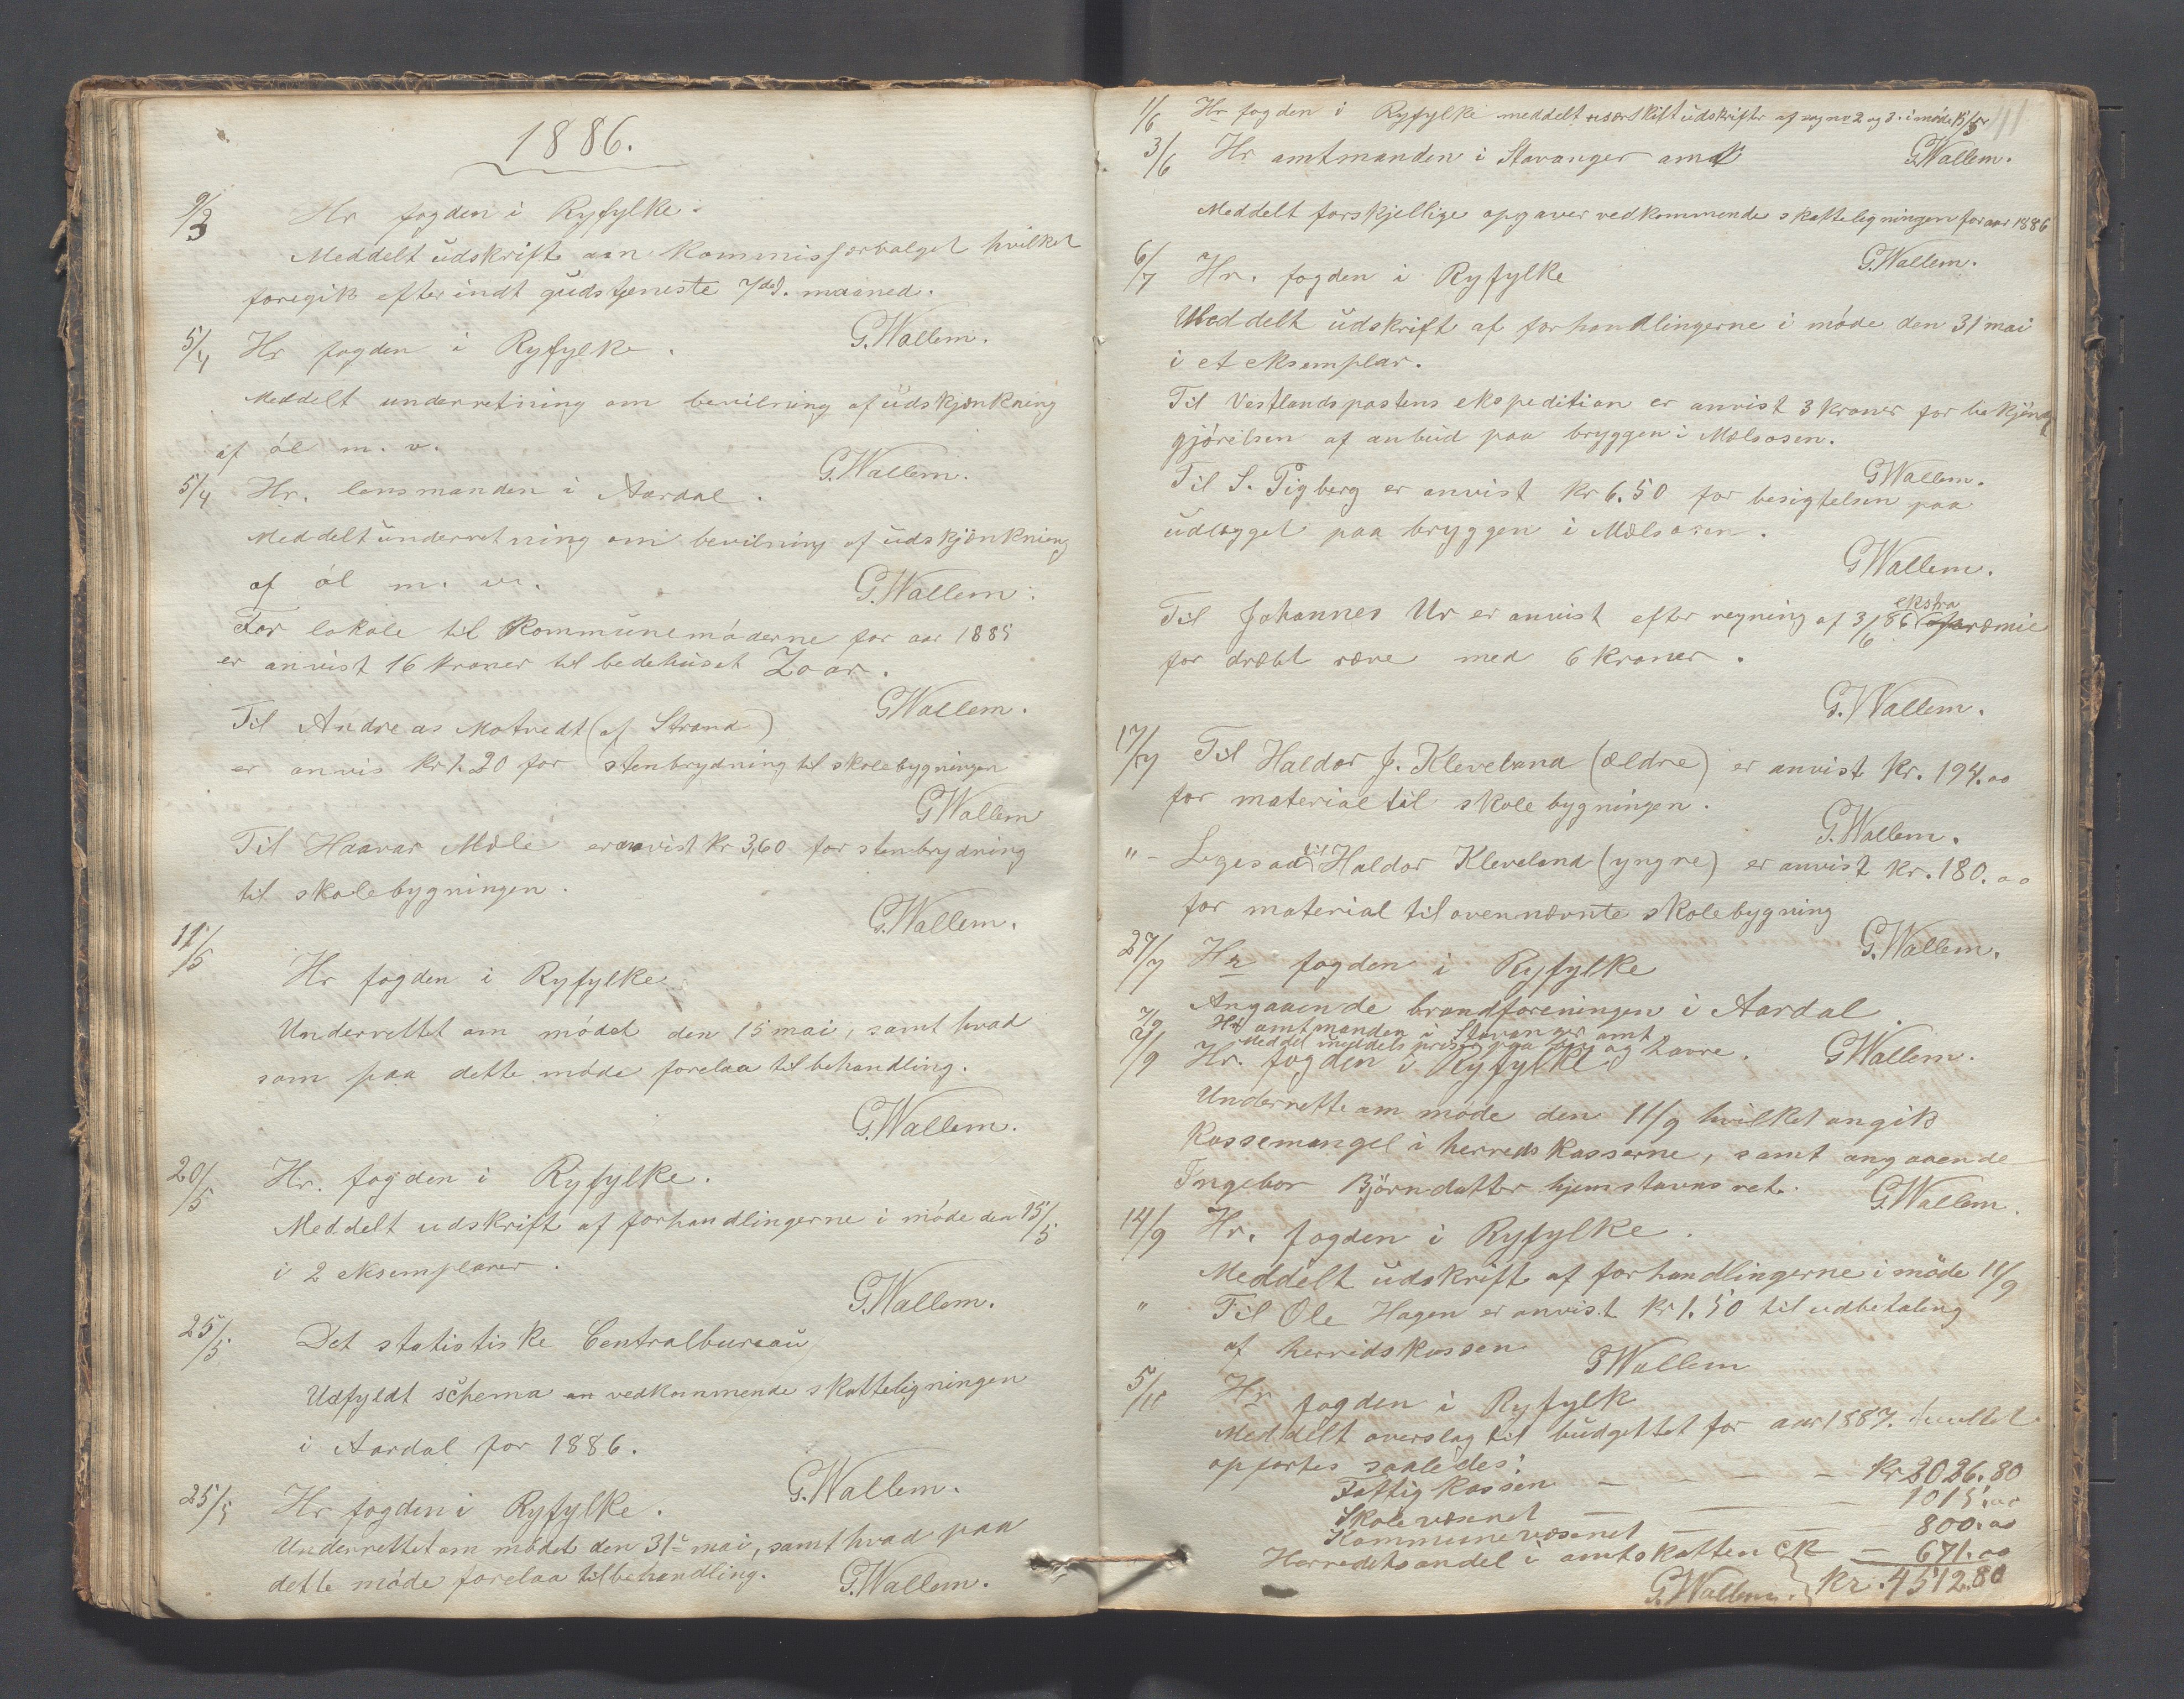 1886.
9/3 Hr fogden i Ryfylke.
Meddelt udskrift om kommissærvalget hvilket
foregik efter indt gudstjeneste 7/ds. maaned.
G.Wallem.
5/4 Hr fogden i Ryfylke.
Meddelt underretning om bevilning af udskjænkning
af øl m. v.
G.Wallem.
5/4 Hr. lensmanden i Aardal.
Meddelt underretning om bevilning af udskjænkning
af øl m. v.
G.Wallem.
For lokale til kommunemøderne for aar 1885
er anvist 16 kroner til bedehuset Zoar.
G.Wallem.
Til Andreas Motvedt (af Strand)
er anvis kr 1.20 for stenbrydning til skolebygningen
G.Wallem
Til Haavar Mæle er anvist kr 3,60 for stenbrydning
til skolebygningen.
G.Wallem.
11/5
Hr fogden i Ryfylke.
Underrettet om mødet den 15 mai, samt hvad
som paa dette møde forelaa til behandling.
G.Wallem.
20/5 Hr. fogden i Ryfylke.
Meddelt udskrift af forhandlingerne i møde den 15/5
i 2 eksemplarer.
G.Wallem.
25/5 Det statistiske Centralbureau
Udfyldt schema vedkommende skatteligningen
i Aardal for 1886.
G.Wallem.
25/5 Hr fogden i Ryfylke.
Underrettet om mødet den 31te mai, samt hvad paa
dette møde forelaa til behandling.
G.Wallem.
41
1/6 Hr fogden i Ryfylke meddelt særskilt udskrifter af sag no 2 og 3 i møde 15/5
G.Wallem.
3/6 Hr amtmanden i Stavanger amt
Meddelt forskjellige opgaver vedkommende skatteligningen for aar 1886
G.Wallem.
6/7 Hr. fogden i Ryfylke
Meddelt udskrift af forhandlingerne i møde den 31 mai
i et eksemplar.
Til Vestlandspostens ekspedition er anvist 3 kroner for bekjendt
gjørelsen af anbud paa bryggen i Mælsosen.
G.Wallem.
Til S. Tigberg er anvist kr 6.50 for besigtelsen paa
udlægget paa bryggen i Mælsosen.
G.Wallem.
Til Johannes Ur er anvist efter regning af 3/6 86 ekstra præmie
for dræbt ræve med 6 kroner.
G.Wallem.
17/7 Til Haldor J. Kleveland (ældre) er anvist kr. 194.00
for material til skolebygningen.
G.Wallem.
" - Ligesaa til Haldor Kleveland (yngre) er anvist kr. 180.00
for material til ovennævnte skolebygning
G.Wallem.
27/7 Hr fogden i Ryfylke
Angaaende brandforeningen i Aardal.
G.Wallem.
7/9 Hr amtmanden i Stavanger amt
Meddel middels priser paa og havre.
21/9 Hr. fogden i Ryfylke
Underrette om møde den 11/9 hvilket angik
kassemangel i herredskasserne, samt angaaende
Ingebor Bjørndatter hjemstavnsret.
G.Wallem.
14/9 Hr. fogden i Ryfylke.
Meddelt udskrift af forhandlingerne i møde 11/9
" Til Ole Hagen er anvist kr 1.50 til udbetaling
af herredskassen
G.Wallem
5/11 Hr fogden i Ryfylk
Meddelt overslag til budgettet for aar 1887. hvilket
opførtes saaledes:
Fattigkassen - - - - Kr 2026.80
Skolevæsenet - - - 1015.00
Kommunevæsenet - - 800.00
Herredets andel i amtskatten ck - 671.00
G.Wallem. kr. 4512.80